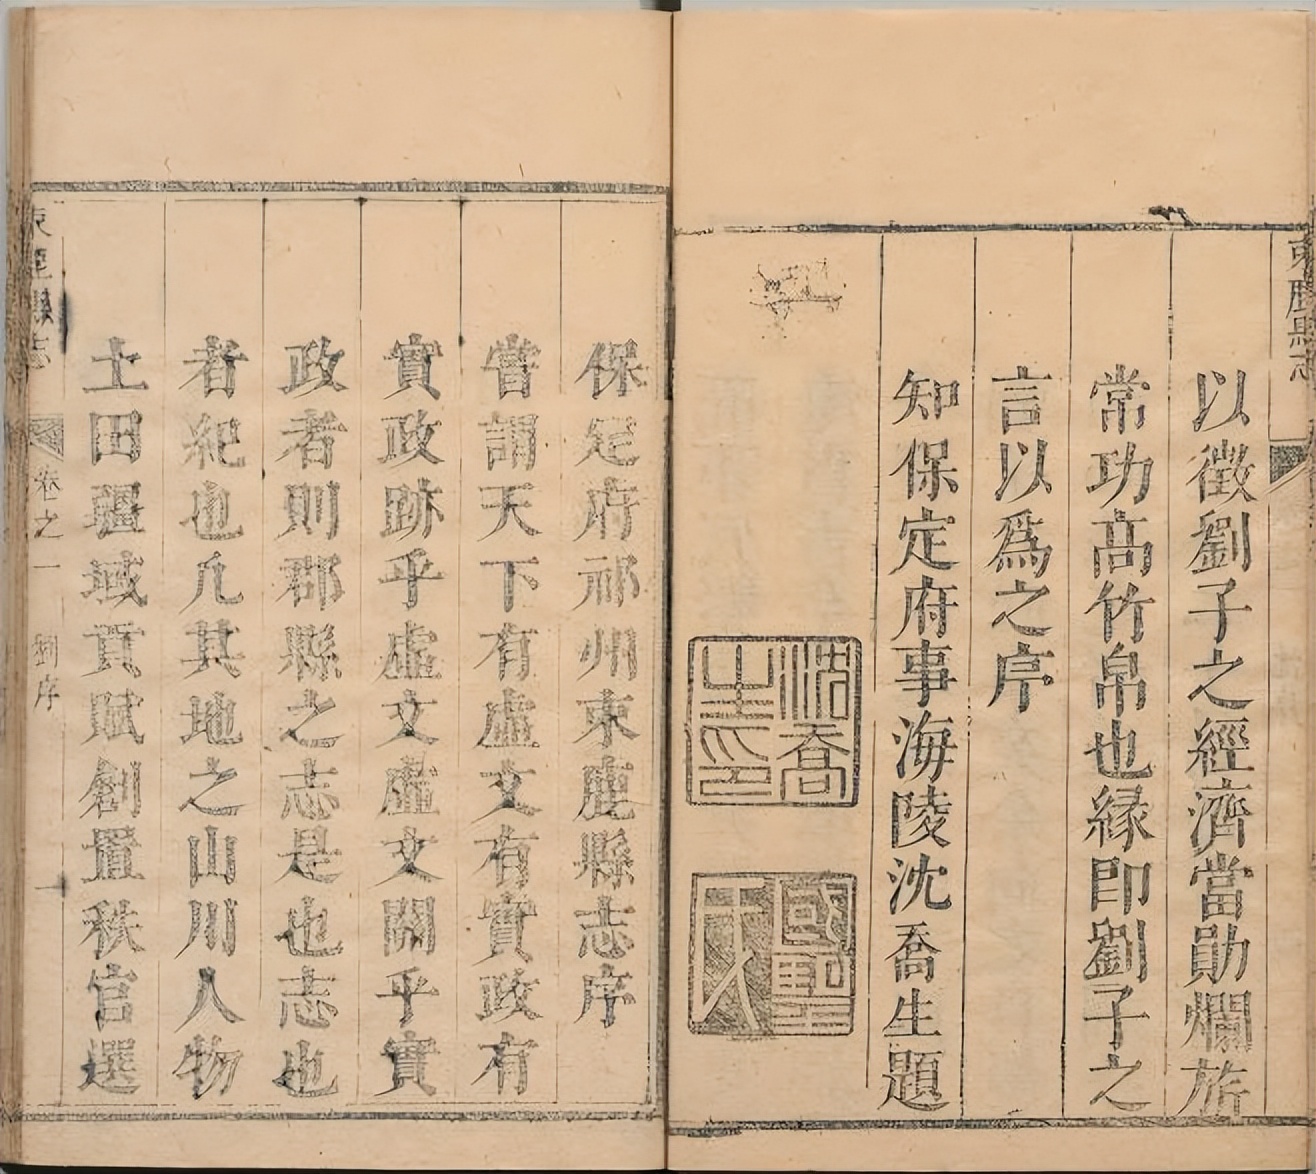 東鹿縣志
以徵劉子之經濟當勛爛旂
常功高竹帛也緣即劉子之
言以爲之序
知保定府事海陵沈喬生題
沈喬
生印
保定府祁州東鹿縣志序
嘗謂天下有虛文有實政有
實政跡乎虛文虛文關乎實
政者則郡縣之志是也志也
者紀也凡其地之山川人物
土田疆域貢賦創置秩官選
東鹿縣志 卷之一 劉序 一